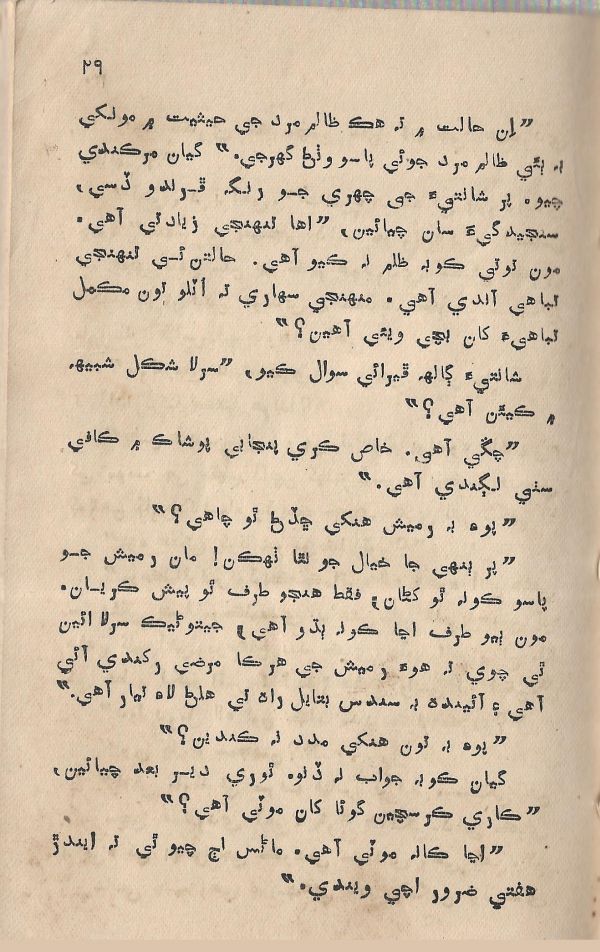 ۲۹
”اِن حالت ۾ تہ هڪ ظالم مرد جي حيثيت ۾ مونکي
بہ ٻئي ظالم مرد جوئي پاسو وٺڻ گهرجي.“ گيان مرڪندي
چيو. پر شانتيءَ جي چهري جو رنگ ڦرندو ڏسي،
سنجيدگيءَ سان چيائين، ”اها تنهنجي زيادتي آهي.
مون توتي ڪوبہ ظلم نہ ڪيو آهي. حالتن ئي تنهنجي
تباهي آندي آهي. منهنجي سهاري تہ اُٽلو تون مڪمل
تباهيءَ کان بچي ويئي آهين؟“
شانتيءَ ڳالهہ ڦيرائي سوال ڪيو، ”سرلا شڪل شبيهہ
۾ ڪيئن آهي؟“
”چڱي آهي. خاص ڪري پنجابي پوشاڪ ۾ ڪافي
سٺي لڳندي آهي.“
”پوءِ بہ رميش هنکي ڇڏڻ ٿو چاهي؟“
”پر ٻنهي جا خيال جو نٿا ٺهڪن! مان رميش جو
پاسو ڪونہ ٿو کڻان، فقط هنجو طرف ٿو پيش ڪريان.
مون ٻيو طرف اڃا ڪونہ ٻڌو آهي، جيتوڻيڪ سرلا ائين
ٿي چوي تہ هوءَ رميش جي هرڪا مرضي رکندي آئي
آهي ۽ آئينده بہ سندس بتايل راه تي هلڻ لاءِ تيار آهي.“
”پوءِ بہ تون هنکي مدد نہ ڪندين؟“
گيان ڪوبہ جواب نہ ڏنو. ٿوري دير بعد چيائين،
”ڪاري ڪرسچين گوئا کان موٽي آهي؟“
”اڃا ڪانہ موٽي آهي. ماڻس اڄ چيو ٿي تہ ايندڙ
هفتي ضرور اچي ويندي.“